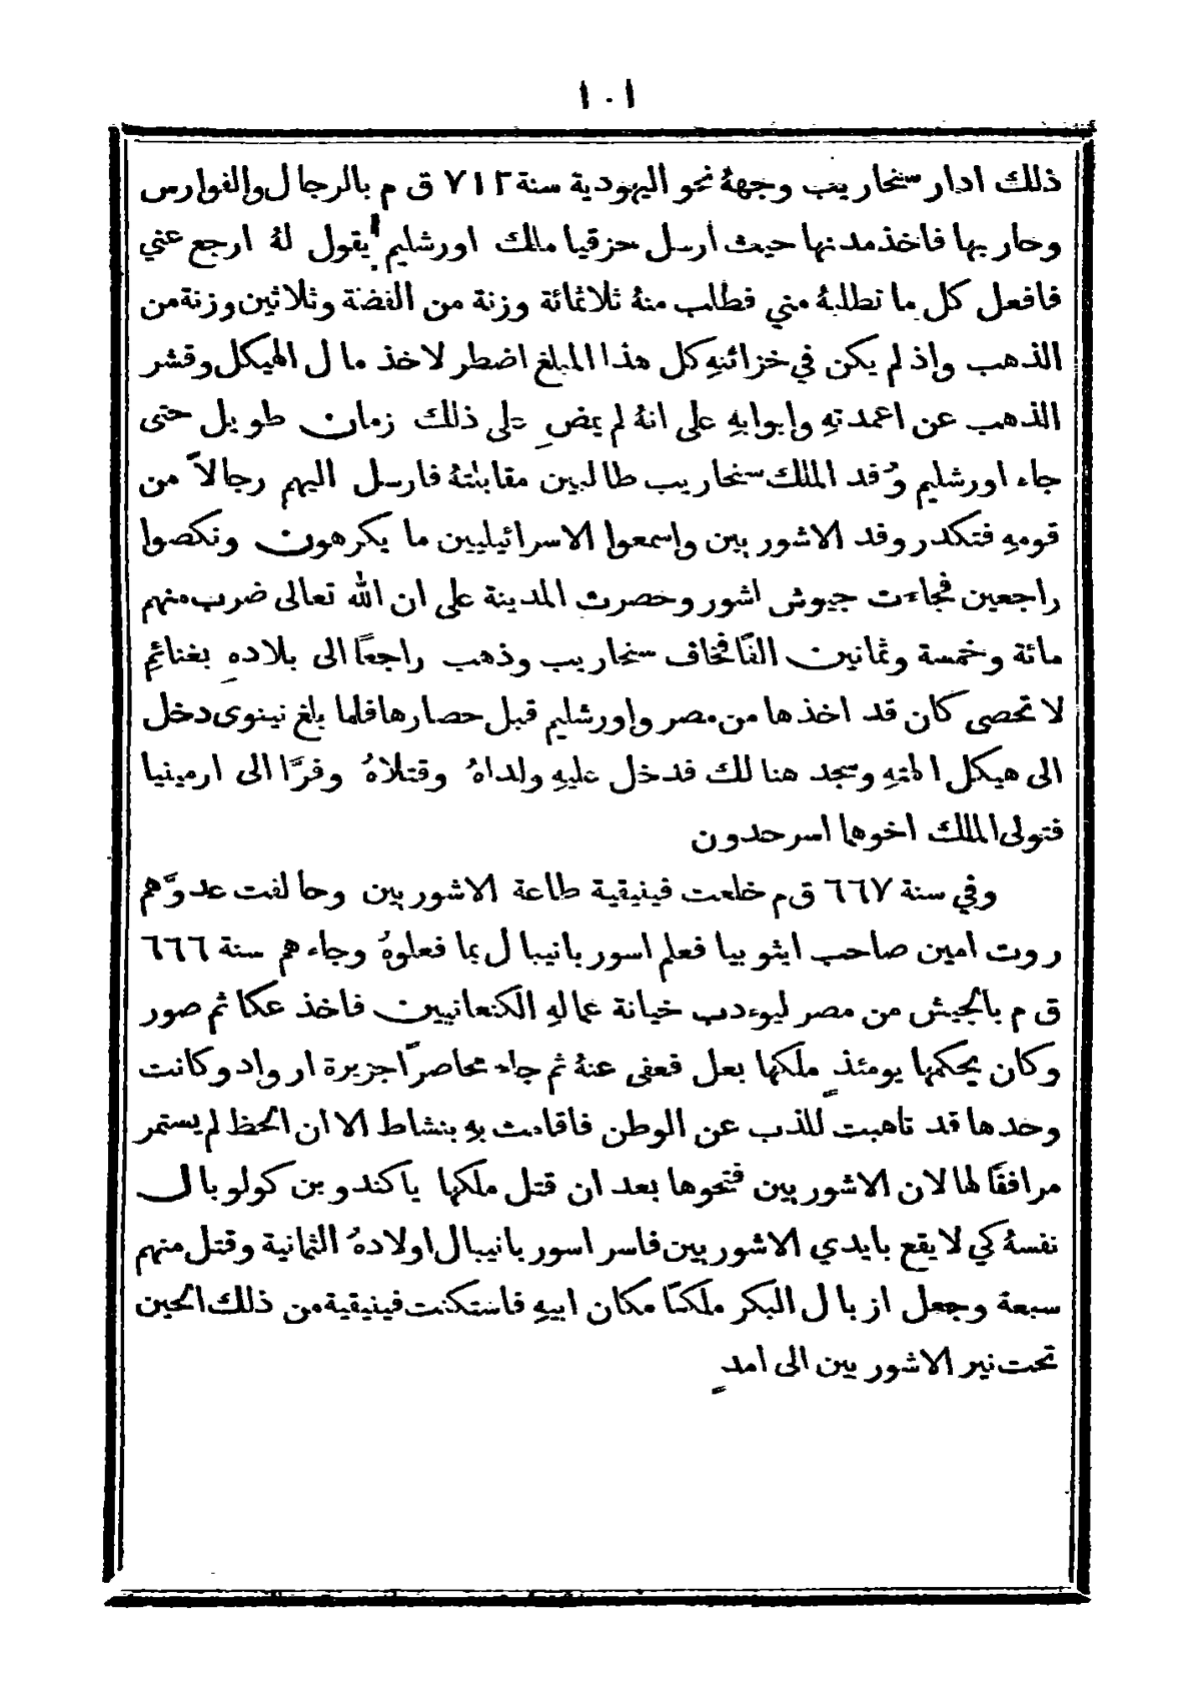 ١٠١
ذلك ادار سنحاريب وجههُ نحو اليهودية سنة ٧١٢ ق م بالرجال والفوارس
وحاربها فاخذ مدنها حيث أرسل حزقيا مالك اورشليم يقول لهُ ارجع عني
فافعل كل ما تطلبهُ مني فطلب منهُ ثلاثمائة وزنة من الفضة وثلاثين وزنة من
الذهب وإذ لم يكن في خزائنهِ كل هذا المبلغ اضطر لاخذ مال الهيكل وقشر
الذهب عن اعمدتهِ وابوابهِ على انهُ لم يمضِ على ذلك زمان طويل حتى
جاء اورشليم وُفد الملك سنحاريب طالبين مقابلتهُ فارسل اليهم رجالاً من
قومهِ فتكدر وفد الاشوريين واسمعوا الاسرائيليين ما يكرهون ونكصوا
راجعين فجاءت جيوش اشور وحصرت المدينة على ان الله تعالى ضرب منهم
مائة وخمسة وثمانين الفًا فخاف سنحاريب وذهب راجعًا الى بلادهِ بغنائمِ
لا تحصى كان قد اخذها من مصر واورشليم قبل حصارها فلما بلغ نينوى دخل
الى هيكل الهتهِ وسجد هنالك فدخل عليهِ ولداهُ وقتلاهُ وفرَّا الى ارمينيا
فتولى الملك اخوهما اسرحدون
وفي سنة ٦٦٧ ق م خلعت فينيقية طاعة الاشوريين وحالفت عدوَّهم
روت امين صاحب ايثوبيا فعلم اسور بانيبال بما فعلوهُ وجاءهم سنة ٦٦٦
ق م بالجيش من مصر ليوءدب خيانة عمالهِ الكنعانيين فاخذ عكا ثم صور
وكان يحكمها يومئذٍ ملكها بعل فعفى عنهُ ثم جاء محاصرًا جزيرة ارواد وكانت
وحدها قد تاهبت للذب عن الوطن فاقامت بهِ بنشاط الا ان الحظ لم يستمر
مرافقًا لها لان الاشوريين فتحوها بعد ان قتل ملكها ياكندو بن كولوبال
نفسهُ كي لا يقع بايدي الاشوريين فاسر اسور بانيبال اولادهُ الثمانية وقتل منهم
سبعة وجعل ازبال البكر ملكًا مكان ابيهِ فاستكنت فينيقية من ذلك الحين
تحت نير الاشوريين الى امدٍ